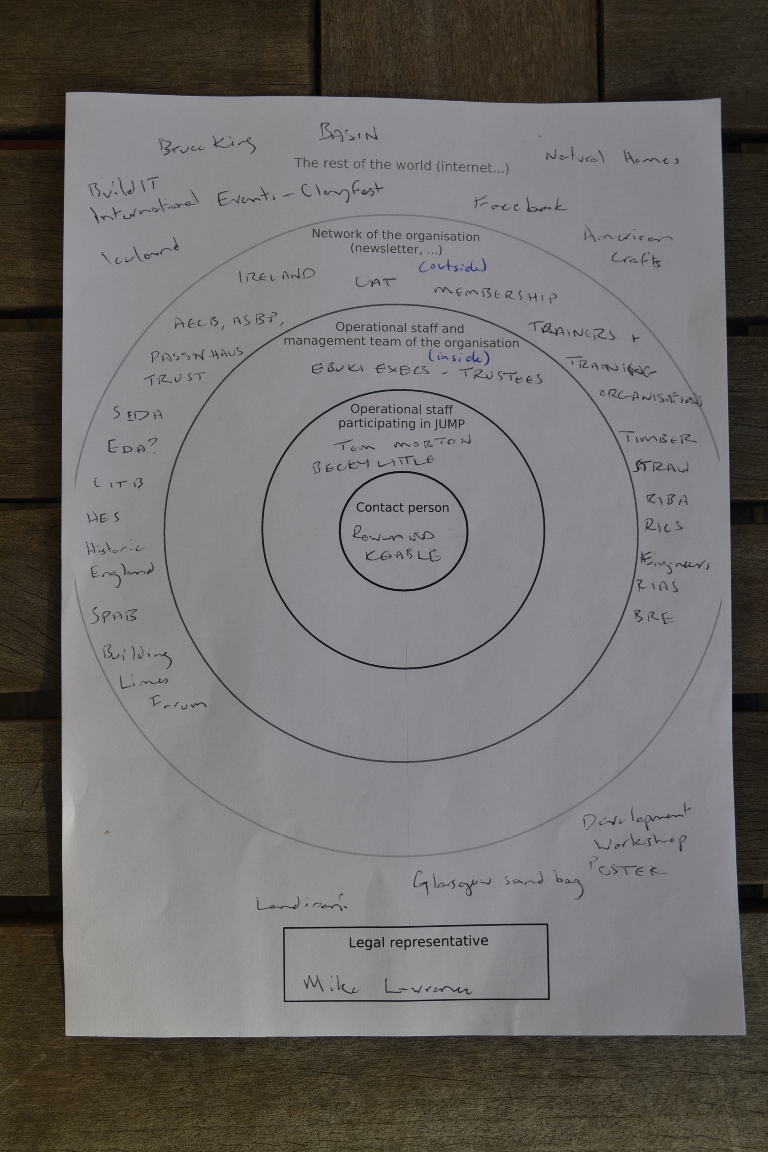 BASIN
Bruce King
Natural Homes
The rest of the world (internet...)
BuildIT
International Events - Clayfest
Facebook
Network of the organisation
(newsletter, ...)
(outside)
American
Crafts
IRELAND
CAT
MEMBERSHIP
AECB, ASBP,
PASSIVHAUS
TRUST
Operational staff and
management team of the organisation
(inside)
EBUKI EXECS - TRUSTEES
TRAINERS +
TRAINING
ORGANISATIONS
SEDA
EDA?
CITB
HES
Historic
England
SPAB
Building
Limes
Forum
Operational staff
participating in JUMP
TOM MORTON
BECKY LITTLE
Contact person
ROWLAND
KEABLE
TIMBER
STRAW
RIBA
RICS
Engineers
RIAS
BRE
Development
Workshop
POSTER
Glasgow sand bag
Legal representative
Mike Lawrence